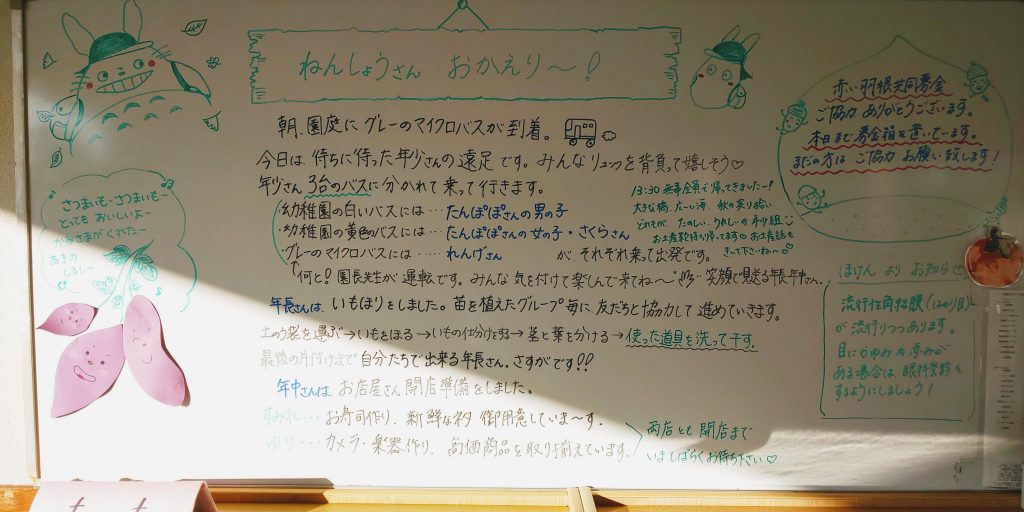 ねんしょうさん おかえり〜!
朝、園庭にグレーのマイクロバスが到着。
今日は、待ちに待った年少さんの遠足です。みんなリュックを背負って嬉しそう♡
年少さん 3台のバスに分かれて乗って行きます。
・幼稚園の白いバスには…たんぽぽさんの男の子
・幼稚園の黄色のバスには…たんぽぽさんの女の子・さくらさん
・グレーのマイクロバスには…れんげさん が、それぞれ乗って出発です。
何と!園長先生が運転です。みんな気を付けて楽しんで来てね〜 笑顔で見送る年長・年中さん。
13:30 無事全員で帰ってきました〜!
大きな橋、広〜い海、秋の実り拾い
どれもが、たのしい、うれしいの年少組
お土産も持ち帰ってます お土産話も
きって下さいね〜
年長さんは、いもほりをしました。苗を植えたグループ毎に、友だちと協力して進めていきます。
土のう袋を選ぶ→いもをほる→いもの仕分けをする→茎と葉を分ける→使った道具を洗って干す。
最後の片付けまで自分たちで出来る年長さん、さすがです!!
年中さんは、お店屋さん開店準備をしました。
すみれ…お寿司作り、新鮮なネタ御用意していま〜す。
ゆり…カメラ・楽器作り、高価商品を取り揃えています。
両店とも開店まで
いましばらくお待ち下さい♡
さつまいも〜さつまいも〜
とっても おいしいよ〜
かみさまがくれた〜
あきの
しるし〜
赤い羽根共同募金
ご協力ありがとうございます。
本日まで募金箱を置いています。
まだの方は ご協力 お願い致します!
ほけん より お知らせ
流行性角結膜(はやり目)
が 流行りつつあります。
目にかゆみや赤みが
ある場合は、眼科受診を
するようにしましょう!